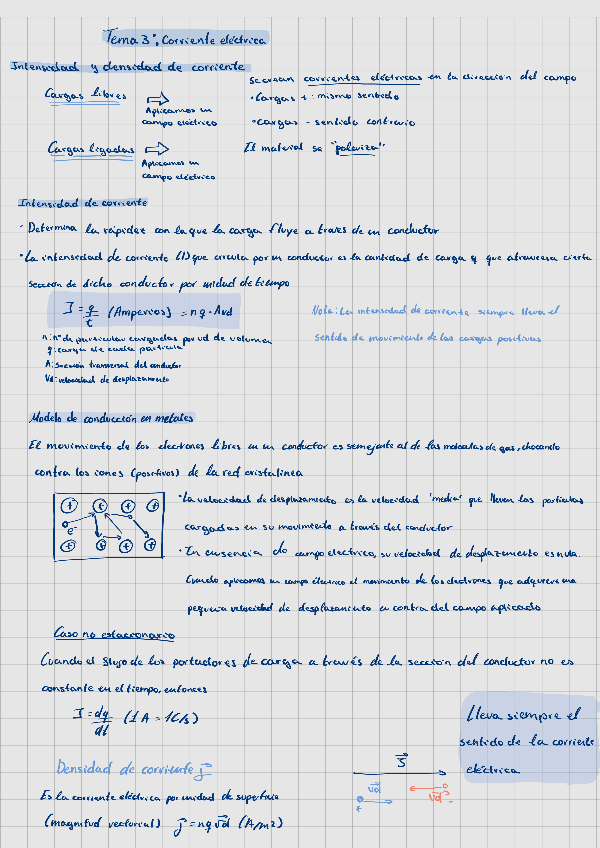 Tema 3: Corriente eléctrica
Intensidad y densidad de corriente
Cargas libres
Aplicamos un
campo eléctrico
Se crean corrientes eléctricas en la dirección del campo
• Cargas + : mismo sentido
• Cargas - sentido contrario
Cargas ligadas
Aplicamos un
campo eléctrico
El material se "polariza"
Intensidad de corriente
· Determina la rapidez con la que la carga fluye a traves de un conductor
• La intensidad de corriente (I) que circula por un conductor es la cantidad de carga q que atraviesa cierta
sección de dicho conductor por unidad de tiempo
I = q/t (Amperios) = nq · Avd
n: nº de particulas cargadas por ud de volumen
q: carga de cada particula
A: Sección transversal del conductor
Vd: velocidad de desplazamiento
Nota: La intensidad de corriente siempre lleva el
sentido de movimiento de las cargas positivas
Modelo de conducción en metales
El movimiento de los electrones libres en un conductor es semejante al de las moleculas de gas, chocando
contra los iones (positivos) de la red cristalinea
+ + + +
e-
+ + + +
• La velocidad de desplazamiento es la velocidad "media" que llevan las particulas
cargadas en su movimiento a través del conductor
• En ausencia de campo electrico, su velocidad de desplazamiento es nula.
Cuando aplicamos un campo électrico el movimiento de los electrones que adquieren una
pequeña velocidad de desplazamiento en contra del campo aplicado
Caso no estacionario
Cuando el flujo de los portadores de carga a través de la sección del conductor no es
constante en el tiempo, entonces
I = dq/dt (1A = 1C/s)
Lleva siempre el
sentido de la corriente
eléctrica
Densidad de corriente j⃗
Es la corriente eléctrica por unidad de superficie
(magnitud vectorial) j⃗ = nq v⃗d (A/m2)
S⃗
v⃗d
+
v⃗d
-